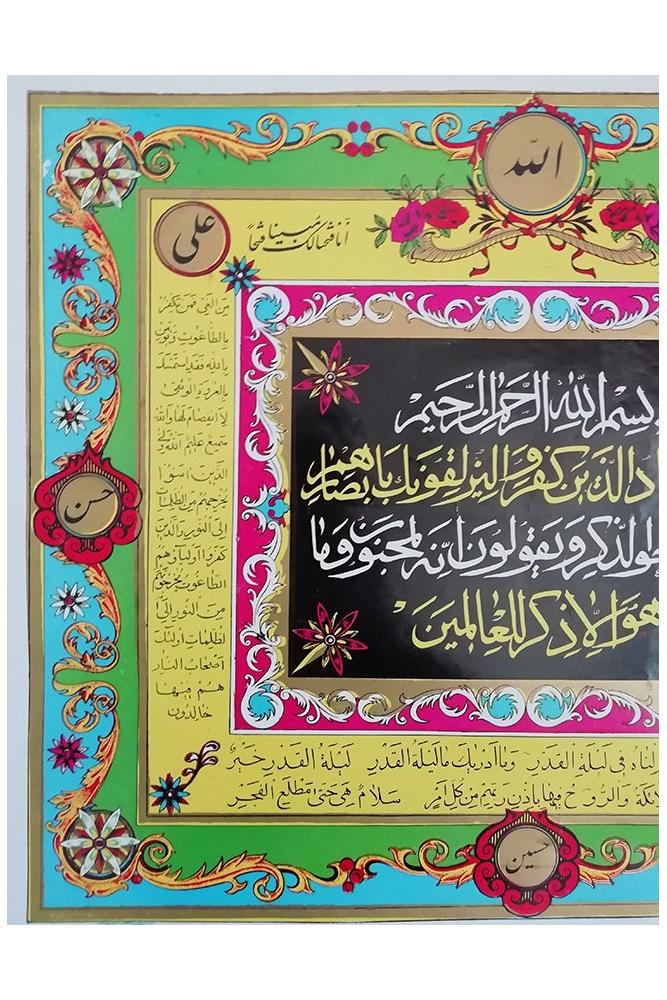 الله
علی
انا فتحنا لك فتحا مبينا
من الغي فمن يكفر
بالطاغوت ويؤمن
بالله فقد استمسك
بالعروة الوثقى
لا انفصام لها والله
سميع عليم الله ولي
الذين امنوا
يخرجهم من الظلمات
الى النور والذين
كفروا اولياؤهم
الطاغوت يخرجونهم
من النور الى
الظلمات اولئك
اصحاب النار
هم فيها
خالدون
حسن
بسم الله الرحمن الرحيم
كاد الذين كفروا ليزلقونك بابصارهم
الذكر ويقولون انه لمجنون وما
هو الا ذكر للعالمين
لناه في ليلة القدر وما ادريك ما ليلة القدر ليلة القدر خير
لائكة والروح فيها باذن ربهم من كل امر سلام هي حتى مطلع الفجر
حسین